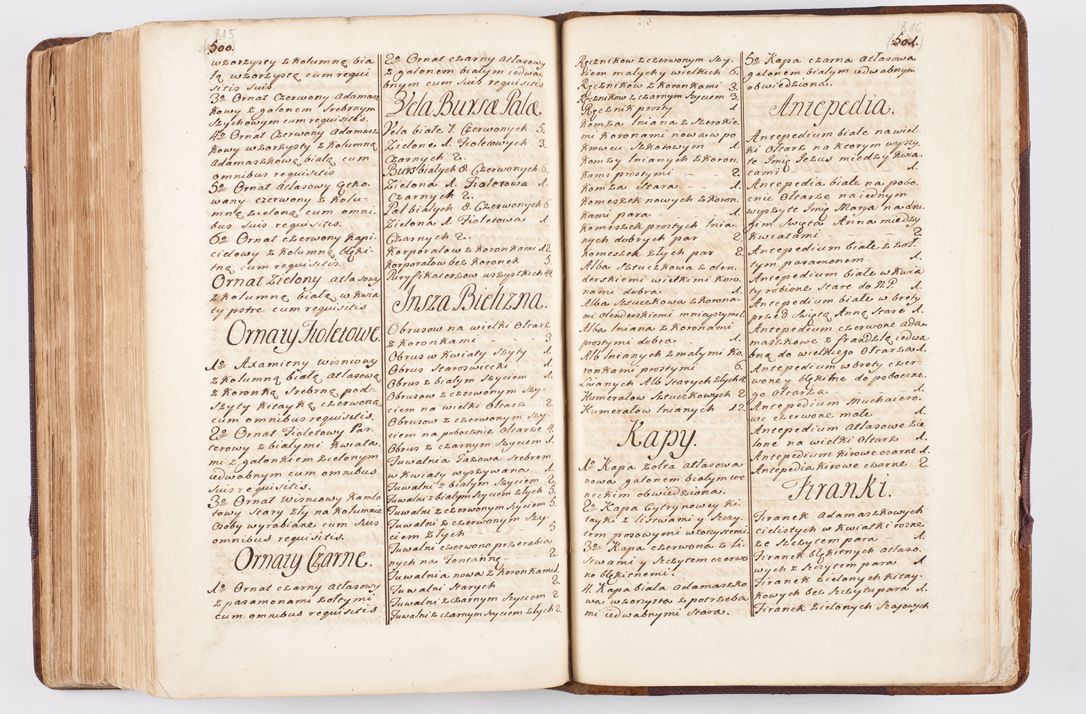 815
500.
wzorzysty z kolumną bia
łą wzorzystą cum requi
sitis suis.
3o Ornat Czerwony Adamasz
kowy z galonem Srebrnym
Szychowym cum requisitis.
4o Ornat Czerwony Adamasz
kowy wzorzysty z kolumną
Adamaszkową białą cum
omnibus requisitis
5o Ornat Atłasowy
wany czerwony z kolu-
mną zieloną cum omni-
bus suis requisitis.
6o Ornat czerwony kapi-
ciclowy z kolumną błęki-
tną cum requisitis.
Ornat Zielony atłasowy
z kolumną białą w kwia
ty pstre cum requisitis
Ornaty Fioletowe.
1o Axamitny wisniowy
z kolumną białą Atłasową
z koronką Srebrną pod-
szyty kitayką czerwoną
cum omnibus requisitis.
2o Ornat Fioletowy Par-
terowy z białymi kwiata-
mi z galonkiem zielonym
iedwabnym cum omnibus
suis requisitis.
3o Ornat wisniowy kamlo
towy Stary zły na kolumnie
Osoby wyrabiane cum suis
omnibus requisitis.
Ornaty Czarne.
1o Ornat czarny Atłasowy
z paramonami żołtymi
cum omnibus requisitis
2o Ornat czarny atłasowy
z galonem białym iedwa-
bnym cum suis requisitis
Vela Bursæ Palæ
Vela białe 7. Czerwonych 5.
Zielone 1. Fioletowych 3.
Czarnych 2.
Burs białych 8. Czerwonych 6
Zielona 1. Fioletowa 1.
Czarnych 2.
Pal białych 8. Czerwonych 6
Zielona 1. Fioletowa 1.
Czarnych 2.
Korporałow z koronkami 12
Korporałow bez koronek 5
Puryfikaterzow wszystkich 44
Insza Bielizna.
Obrusow na wielki Ołtarz
z koronkami 3
Obrus w kwiaty Szyty 1.
Obrus Staroswiecki 1.
Obrus z białym Szyciem 1.
Obrusow z czerwonym Szy-
ciem na wielki Ołtarz 2
Obrusow z czerwonym Szy-
ciem na pobocznie Ołtarze 4.
Obrus z czarnym Szyciem 1.
Tuwalnia Gazowa Srebrem
w kwiaty wyszywana 1.
Tuwalni z białym Szyciem 2.
Tuwalni z białym Szyciem złych 3.
Tuwalni z czerwonym Szyciem 5
Tuwalni z czerwonym Szy-
ciem złych 5
Tuwalni czerwono przerabia
nych na Fontannę 2.
Tuwalnia nowa z koronkami 1.
Tuwalni Starych 2.
Tuwalni z czarnym Szyciem 2
Tuwalni z czarnym Szyciem złych 2
816
501.
Ręcznikow z czerwonym Szy-
ciem małych y wielkich 6.
Ręcznikow z koronkami 3.
Ręcznikow z czarnym Szyciem 3.
Ręcznik prosty 1.
Komza lniana z Szerokie-
mi koronami nowa w po
krowcu Szkatowym 1.
Komży lnianych z koron-
kami prostymi 2
Komża Stara 1.
Komeżek nowych z koron-
kami para 1.
Komeżek prostych lnia-
nych dobrych par 2.
Komeżek złych par 2.
Alba Sztuczkowa z olen-
derskiemi wielkimi koro-
nami dobra 1.
Alba Sztuczkowa z korona-
mi olenderskiemi mnieyszymi 1.
Alba lniana z koronami
prostymi dobra 1.
Alb lnianych z małymi ko-
ronkami prostymi 6.
Lnianych Alb Starych złych 2
Humerałow Sztuczkowych 2
Humerałow lnianych 12.
Kapy.
1o Kapa żołta atłasowa
nowa galonem białym we
neckim obwiedziona.
2o Kapa Cytrynowey ki
tayki z listwami y Szczy-
tem ponsowymi wzorzystemi
3o Kapa czerwona z li
stwami y Szczytem czerwo
no błękitnemi.
4. Kapa biała Adamaszko
wa wzorzysta z potrzeba
mi iedwabnymi Stara.
5o Kapa czarna atłasowa
galonem białym iedwabnym
obwiedziona.
Antepedia.
Antepedium białe na wiel-
ki Ołtarz na ktorym wyszy-
te Imię Jezus między kwia-
tami 1
Antepedia białe na pobo-
cznie Ołtarze na iednym
wyszyte Imię Marya na dru-
gim Swięta Anna między
kwiatami 2
Antepedium białe z żoł-
tym paramonem. 1.
Antepedium białe w kwia
ty robione Stare do N.P. 1.
Antepedium białe w brety
przed Swiętą Annę Stare 1.
Antepedium czerwone ada-
maszkowe z frandzlą iedwa
bną do wielkiego Ołtarza 1.
Antepedium w brety czer-
wone y błękitne do poboczne-
go Ołtarza. 1.
Antepedium Muchaiero-
we czerwone małe 1.
Antepedium Atłasowe zie
lone na wielki Ołtarz 1.
Antepedium kirowe czarne 1.
Antepedia kirowe czarne 2
Firanki.
Firanek Adamaszkowych
cielistych w kwiatki rożne
ze Szczytem para 1
Firanek błękitnych atłaso-
wych z Szczytem para 1
Firanek zielonych kitay-
kowych bez Szczytu para 1.
Firanek zielonych Szajowych